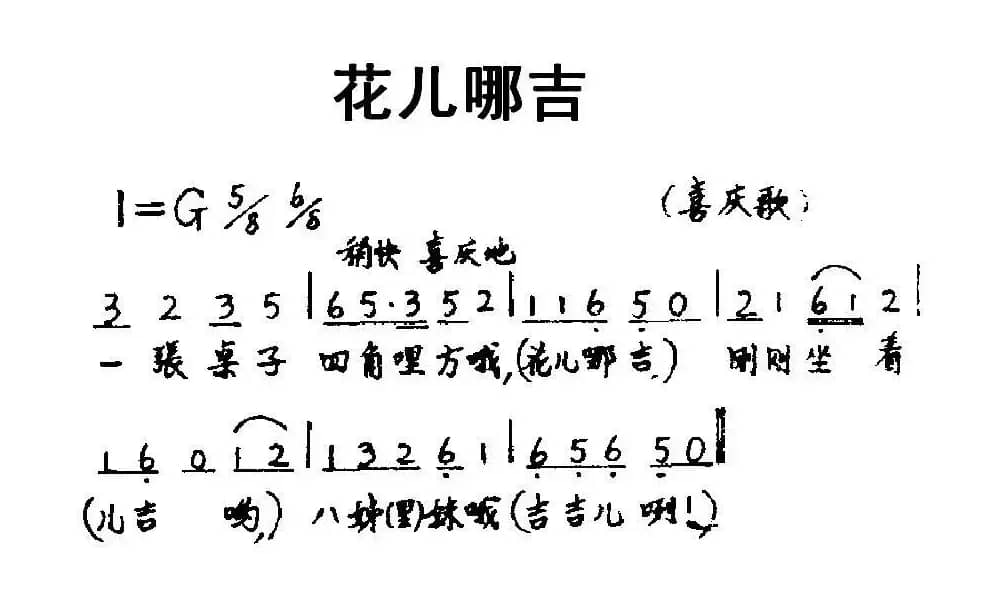 花儿哪吉
1=G 5/8 6/8 (喜庆歌)
稍快 喜庆地
3 2 3 5 | 6 5 · 3 5 2 | 1 1 6 5 0 | 2 1 6 1 2 |
一张桌子 四角哩方哦,(花儿哪吉) 刚刚坐着
1 6 0 1 2 | 1 3 2 6 1 | 6 5 6 5 0 ‖
(儿吉 哟,) 八姊(里)妹哦(吉吉儿咧!)